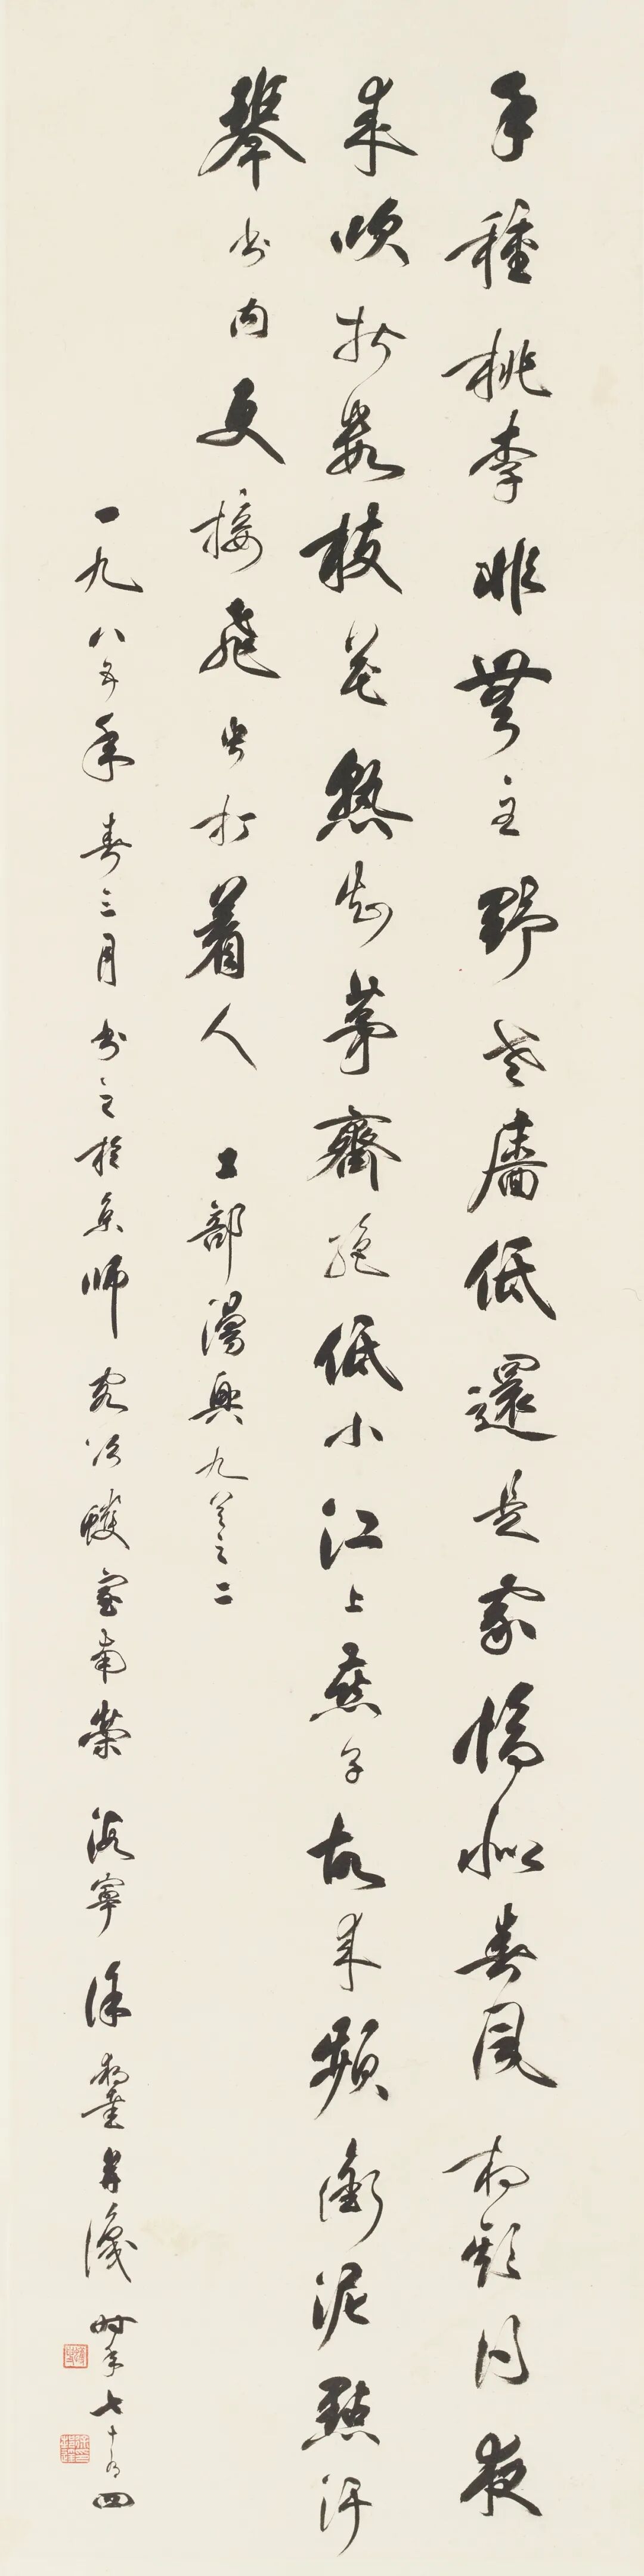 手種桃李非無主野老牆低還是家恰似春風相欺得夜
來吹折數枝花熟知茅齋絕低小江上燕子故來頻銜泥點汙
琴書內更接飛虫打着人 工部漫興九首之二
一九八五年春三月書之於京師客次 南榮 海寧徐 并識時年七十有四